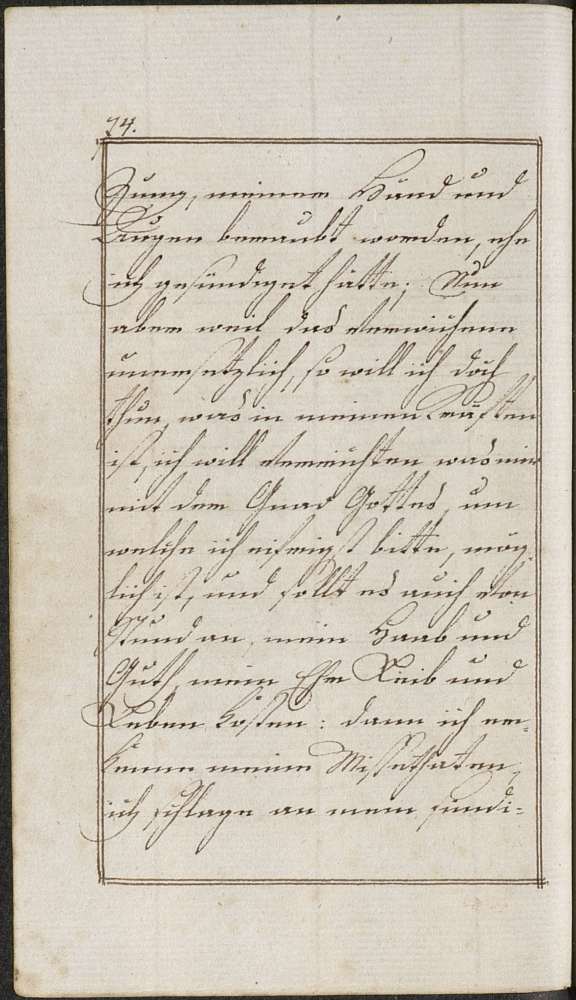 74.
Zung, meiner Händ und
Augen beraubt worden, ehe
ich gesündiget hätte; Nun
aber weil das verwichene
unersetzlich, so will ich doch
thun, was in meinen Kräften
ist, ich will verrichten was mir
mit der Gnad Gottes, um
welche ich eifrigst bitte, mög
lich ist, und sollt es auch von
Stund an, mein Haab und
Guth, mein Ehr Leib und
Leben kosten: dann ich er-
kenne meine Missethaten,
ich schlage an mein sündi-